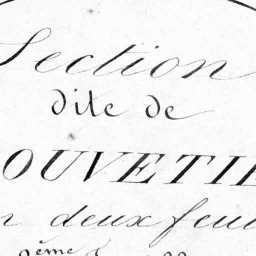 Section
dite de
OUVETI
n deux feui
2ème